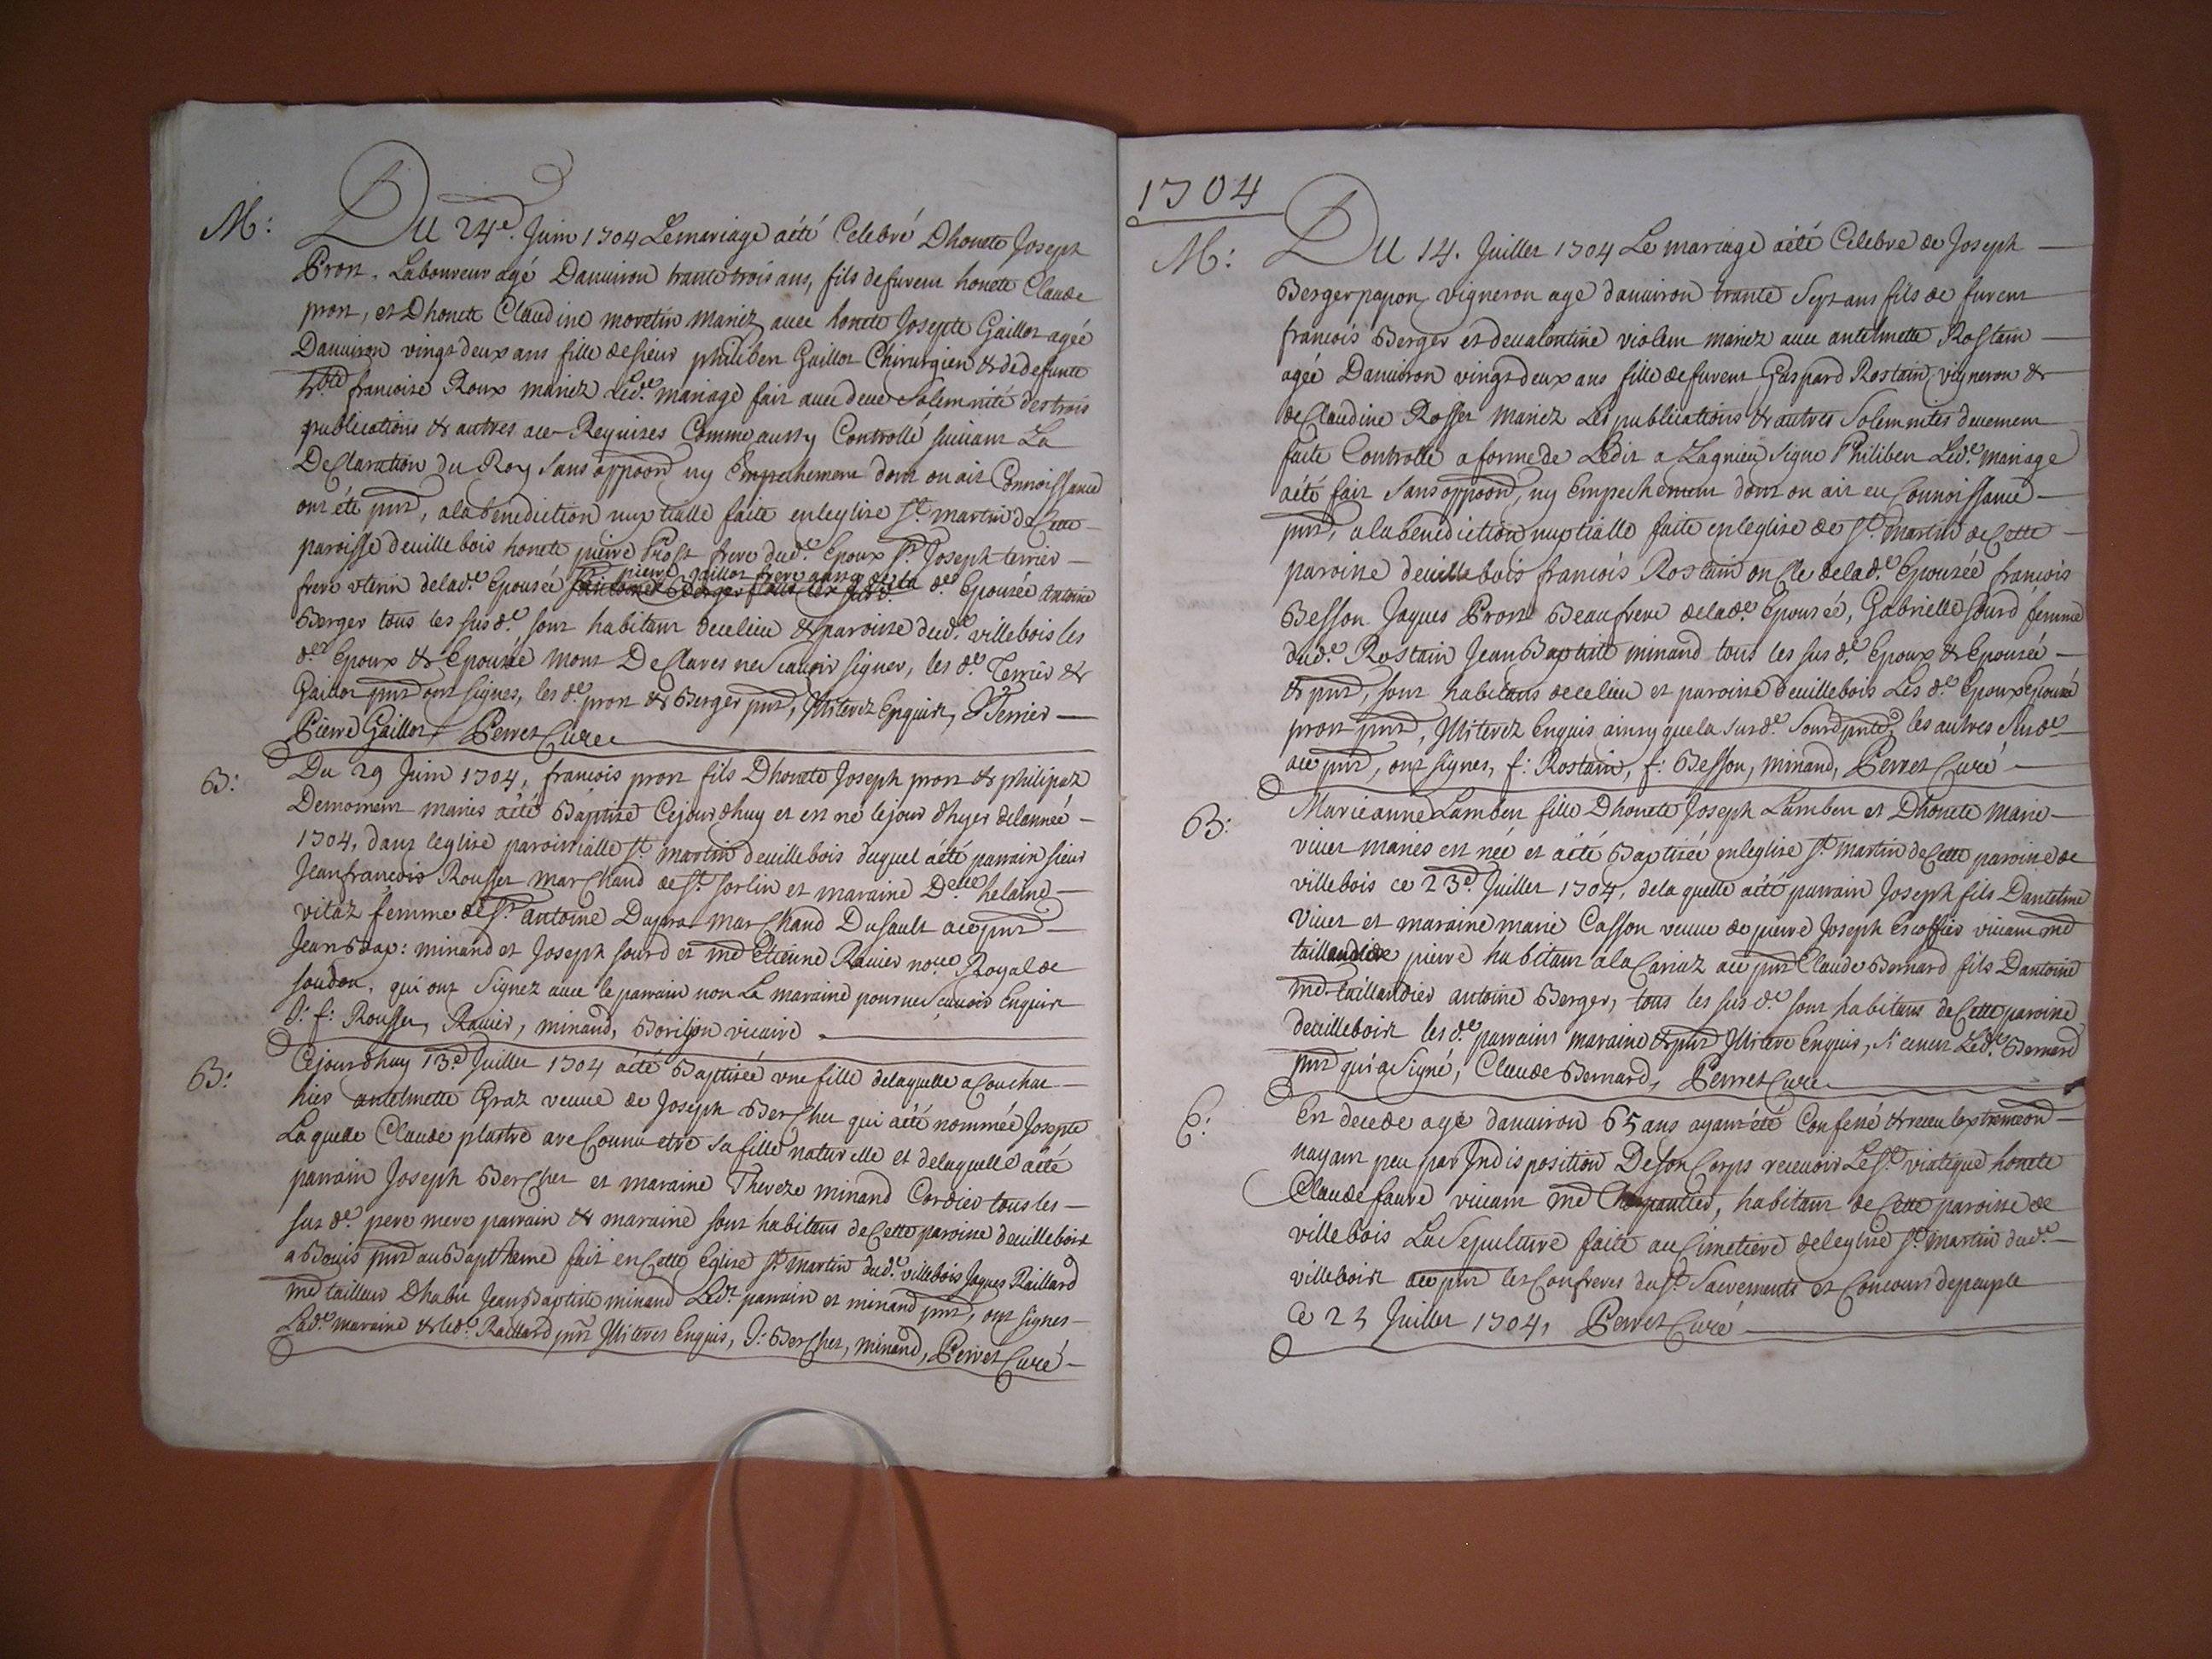 M:
Du 24e. Juin 1704 Le mariage aété Celebré Dhonete Joseph
Pront. Laboureur agé Dauuiron trante trois ans, fils de furent honete Claude
pront, et Dhonete Claudine moretin mariez auec honete Josepte Gaillot agée
Dauuiron vingt deux ans fille de sieur philibert Gaillot Chirurgien & de defunte
francoise Roux mariez Led.e mariage fait auec deue Solemnité des trois
publications & autres ace Requizes Comme aussy Controllé suiuant La
Declaration du Roy sans oppoon ny Empechement dont on ait Connoissance
ont été pnt, ala benediction nuptialle faite enleglise St. martin de Cette
paroisse deuillebois honete pierre Prost frere dud.e Epoux Sr. Joseph terrier
frere vterin delad.e Epousée pierre gaillot frere aussy de la d.e Epousée Antoine
Berger tous les susd.e sont habitant decelieu & paroisse dud.e villebois les
d.es Epoux & Epousée mont Declares ne scauoir signer, les d.e Terrier &
Gaillot pnt ont signes, les d.e pront & Berger pnt, Illiterez Enquist, J Terrier
Pierre Gaillot, Perret Curé
B:
Du 29 Juin 1704, francois pront fils Dhonete Joseph pront & philipaz
Demornent maries aété Baptisé Cejourdhuy et est né lejour dhyer delannée
1704, dans leglise paroissialle St. martin deuillebois duquel aété parrain sieur
Jeanfrancois Rousset marchand de St. Sorlin et maraine Delle helaine
vitaz femme de Sr. antoine Duprat marchand Dusault ace pnt
Jean Bap: minand et Joseph sourd et me Etienne Rauier nore Royal de
soudon, qui ont Signez auec le parrain non La maraine pour ne scauoir Enquist
J: f: Rousset, Rauier, minand, Borilion vicaire
B:
Cejourdhuy 13e Juillet 1704 aété Baptisée vne fille delaquelle acouchat
hier antelmette Graz veuue de Joseph Berchet qui aété nommée Josepte
Laquelle Claude plastre are Connu etre sa fille naturelle et delaquelle aété
parrain Joseph Berchet et maraine Thereze minand Cordier tous les
sus d.e pere mere parrain & maraine sont habitans de Cette paroisse deuillebois
a Bouis pnt au Baptheme fait en Cette Eglise St. martin dud.e villebois Jaques Raillard
me tailleur Dhabit Jean Baptiste minand Led.t parrain et minand pnt, ont signes
Lad.e maraine & led.e Raillard pnt Illiteres Enquis, J: Berchet, minand, Perret Curé
1704
M:
Du 14. Juillet 1704 Le mariage aété Celebre de Joseph
Berger papon, vigneron agé dauuiron trante Sept ans fils de furent
francois Berger et deualentine violent mariez auec antelmette Rostain
agée Dauuiron vingt deux ans fille defurent Gaspard Rostain vigneron &
de Claudine Rosset mariez Les publications & autres Solemnites deuement
faite Controlle aforme de Ledit a Lagnieu Signe Philibert Led.e mariage
aété fait sans oppoon, ny Empechement dont on ait eu Connoissance
pnt, ala benediction nuptialle faite enleglise de St. martin de Cette
paroisse deuillebois francois Rostain oncle delad.e Epousée francois
Besson Jaques Pront Beaufrere delad.e Epousée, Gabrielle Sourd femme
dud.e Rostain Jean Baptiste minand tous les sus d.e Epoux & Epousée
& pnt, sont habitans decelieu et paroisse deuillebois Les d.e Epoux Epousée
pront pnt, Illiterez Enquis ainsy quela susd.e Sourd pnte, les autres susd.e
ace pnt, ont signes, f: Rostain, f: Besson, minand, Perret Curé
B:
Marieanne Lambert fille Dhonete Joseph Lambert et Dhonete Marie
viuet maries est née et aété Baptisée enleglise St. martin de Cette paroisse de
villebois ce 23e Juillet 1704, dela quelle aété parrain Joseph fils Dantelme
viuet et maraine marie Casson veuue de pierre Joseph Escoffier viuant me
tailleur de pierre habitant ala Carriaz ace pnt Claude Bernard fils Dantoine
me taillandier antoine Berger, tous les sus d.e sont habitans de Cette paroisse
deuillebois les d.e parrains maraine & pnt Illitere Enquis, Si cenest Led.e Bernard
pnt quia Signé, Claude Bernard, Perret Curé
E:
Est decede agé dauuiron 65 ans ayant été Confessé & receu lextremeon
nayant peu par Indisposition Deson Corps receuoir Le St. viatique honete
Claude faure viuant me Charpantier, habitant de Cette paroisse de
villebois La Sepulture faite au Cimetiere deleglise St. martin dud.e
villebois ace pnt les Confreres du St. Sacrements et Concours de peuple
Ce 23 Juillet 1704, Perret Curé